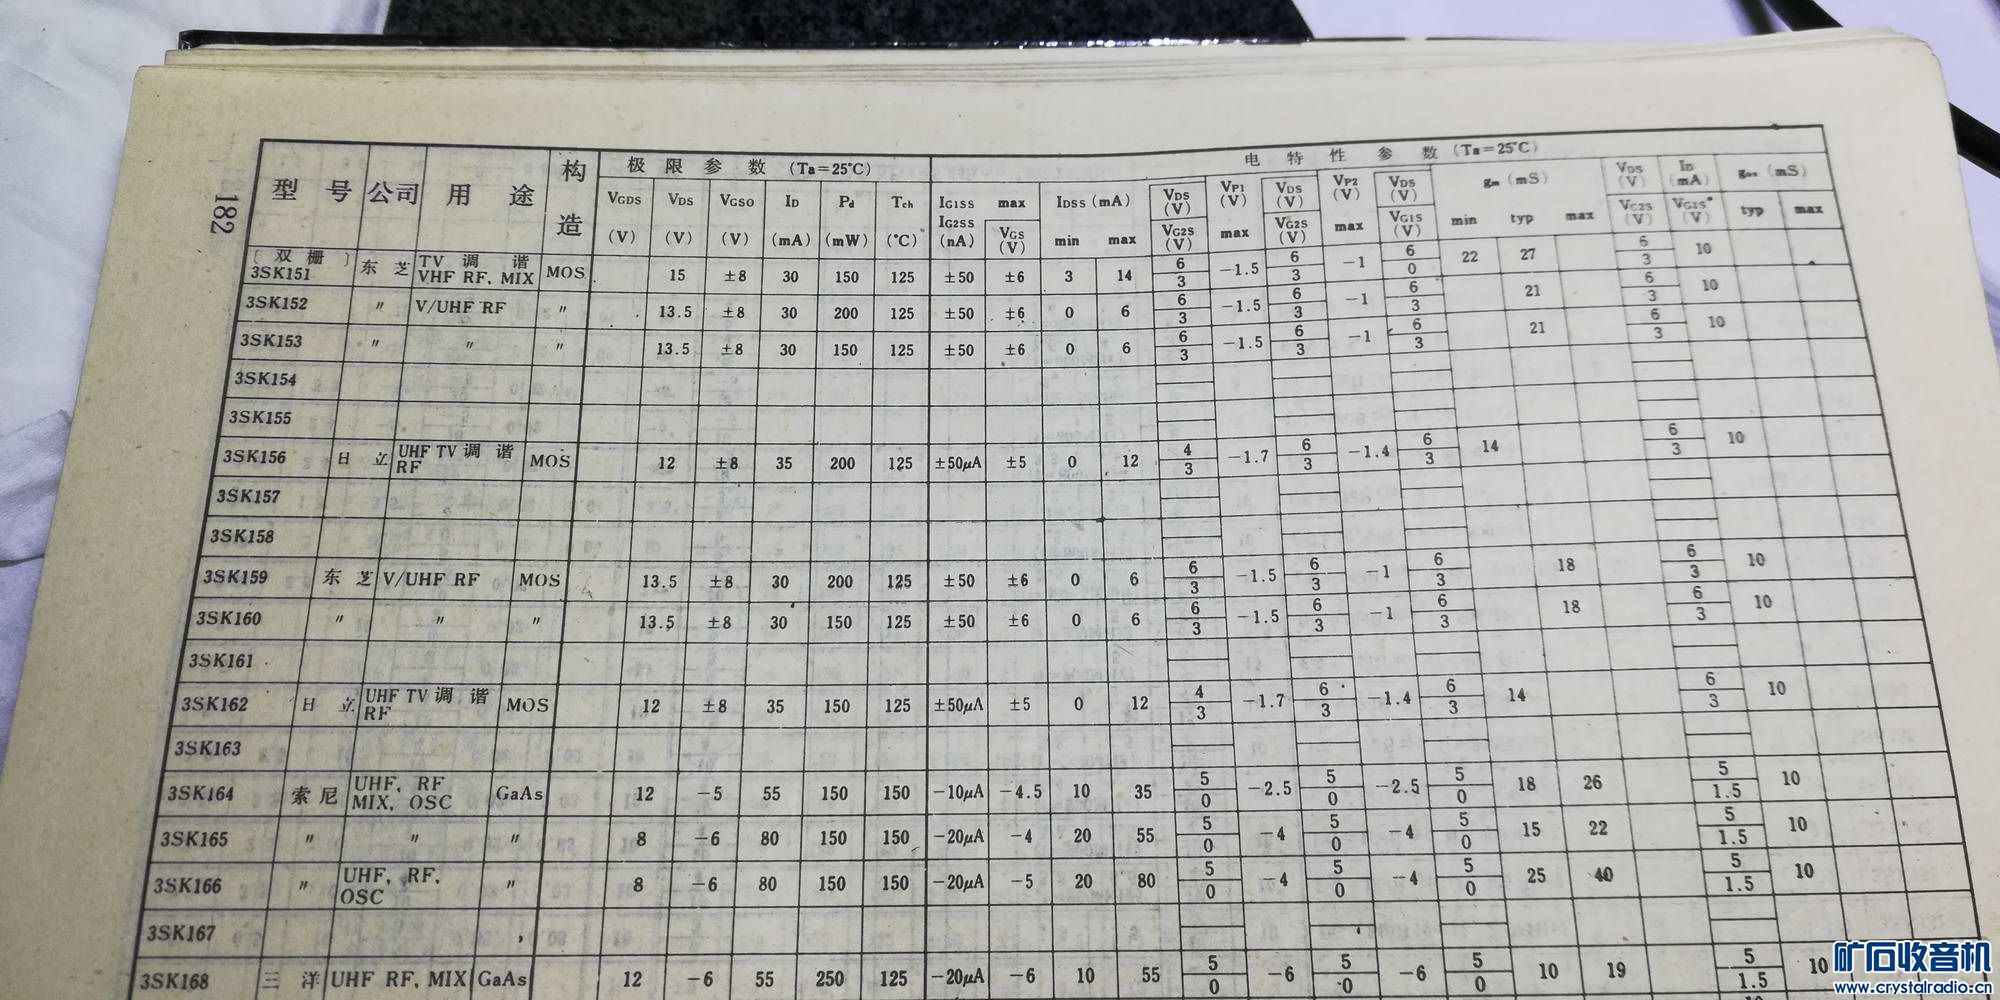 182
型 号 公司 用 途 构造 极 限 参 数 (Ta=25℃) 电 特 性 参 数 (Ta=25℃)
VGDS (V) VDS (V) VGSO (V) ID (mA) Pd (mW) Tch (℃) IG1SS IG2SS (nA) max VGS (V) IDSS (mA) min max VDS (V) VG2S (V) VP1 (V) max VDS (V) VG2S (V) VP2 (V) max VDS (V) VG1S (V) gm (mS) min typ max VDS (V) VG2S (V) ID (mA) VG1S* (V) (mS) typ max
〔双栅〕
3SK151 东 芝 TV 调 谐 VHF RF, MIX MOS 15 ±8 30 150 125 ±50 ±6 3 14 6 3 -1.5 6 3 -1 6 0 22 27 6 3 10
3SK152 〃 V/UHF RF 〃 13.5 ±8 30 200 125 ±50 ±6 0 6 6 3 -1.5 6 3 -1 6 3 21 6 3 10
3SK153 〃 〃 〃 13.5 ±8 30 150 125 ±50 ±6 0 6 6 3 -1.5 6 3 -1 6 3 21 6 3 10
3SK154
3SK155
3SK156 日 立 UHF TV 调 谐 RF MOS 12 ±8 35 200 125 ±50μA ±5 0 12 4 3 -1.7 6 3 -1.4 6 3 14 6 3 10
3SK157
3SK158
3SK159 东 芝 V/UHF RF MOS 13.5 ±8 30 200 125 ±50 ±6 0 6 6 3 -1.5 6 3 -1 6 3 18 6 3 10
3SK160 〃 〃 〃 13.5 ±8 30 150 125 ±50 ±6 0 6 6 3 -1.5 6 3 -1 6 3 18 6 3 10
3SK161
3SK162 日 立 UHF TV 调 谐 RF MOS 12 ±8 35 150 125 ±50μA ±5 0 12 4 3 -1.7 6 3 -1.4 6 3 14 6 3 10
3SK163
3SK164 索 尼 UHF, RF MIX, OSC GaAs 12 -5 55 150 150 -10μA -4.5 10 35 5 0 -2.5 5 0 -2.5 5 0 18 26 5 1.5 10
3SK165 〃 〃 〃 8 -6 80 150 150 -20μA -4 20 55 5 0 -4 5 0 -4 5 0 15 22 5 1.5 10
3SK166 〃 UHF, RF, OSC 〃 8 -6 80 150 150 -20μA -5 20 80 5 0 -4 5 0 -4 5 0 25 40 5 1.5 10
3SK167
3SK168 三 洋 UHF RF, MIX GaAs 12 -6 55 250 125 -20μA -6 10 55 5 0 -6 5 0 -6 5 0 10 19 5 1.5 10
矿石收音机
www.crystalradio.cn